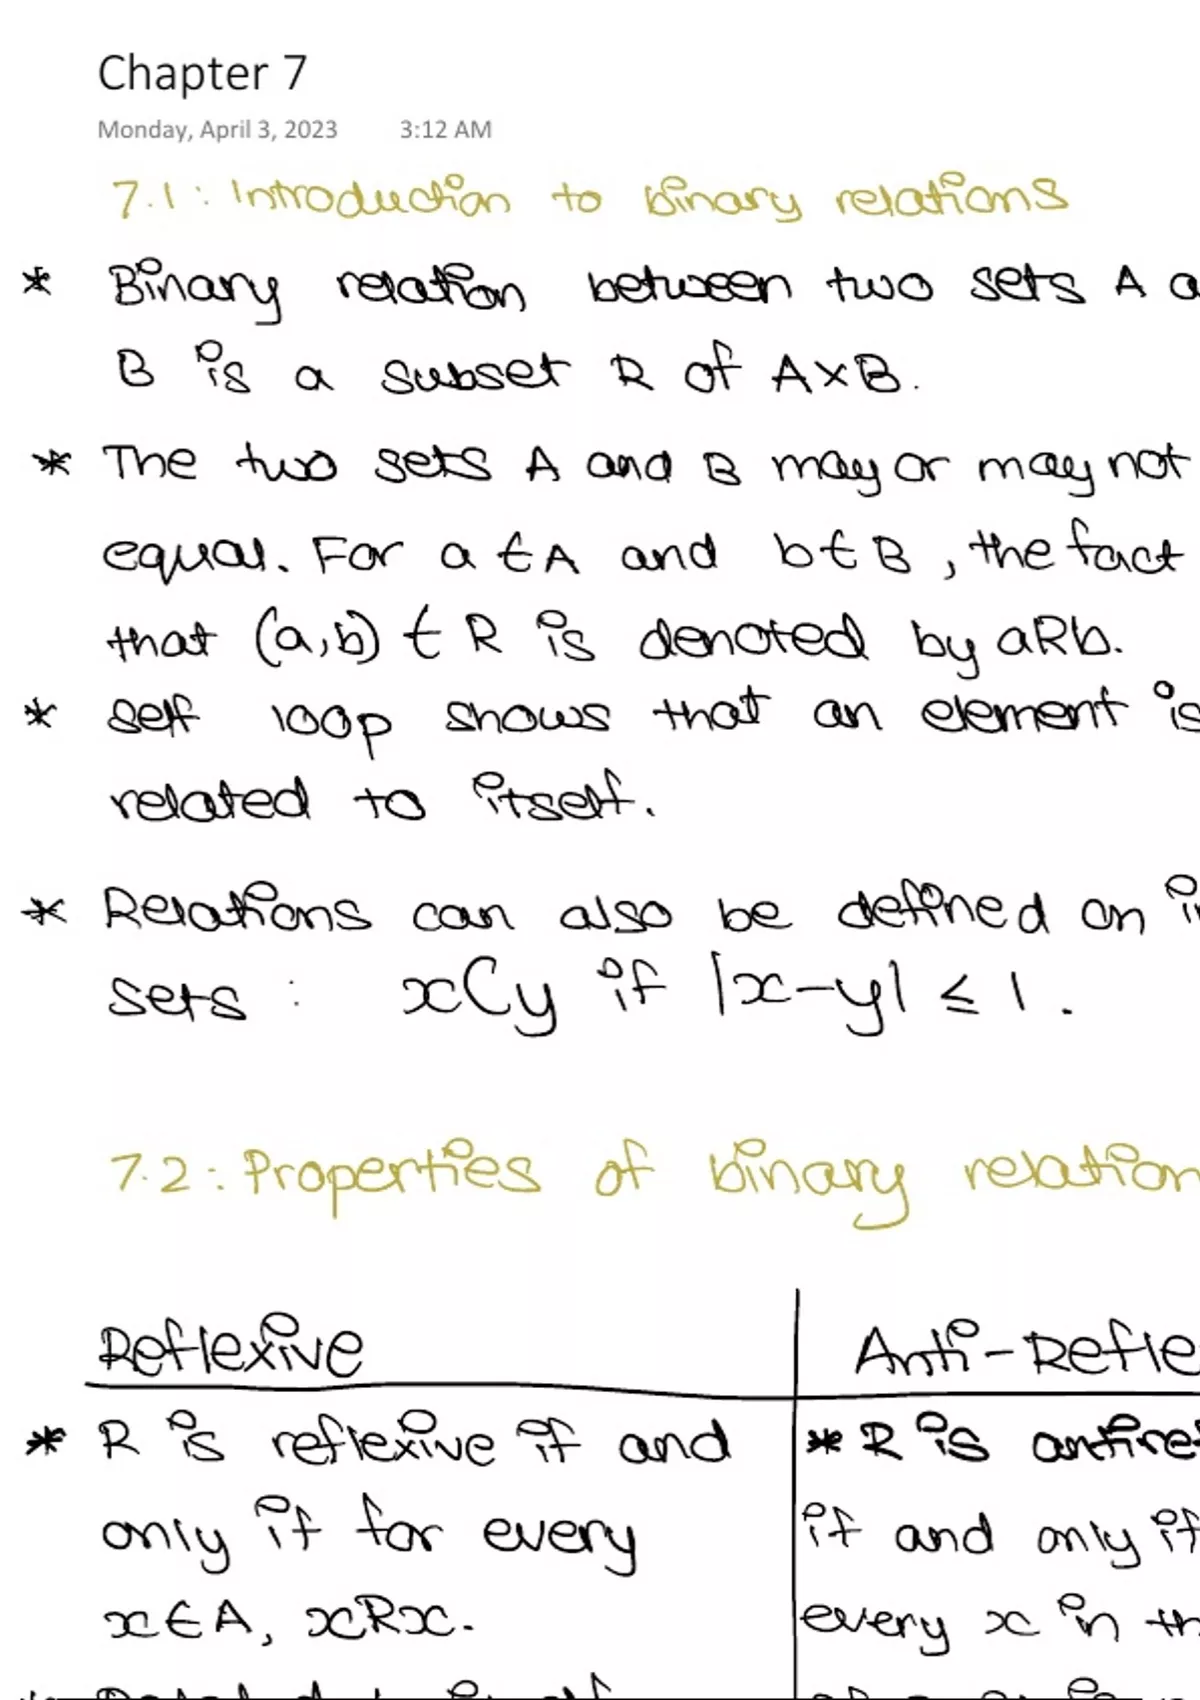 Chapter 7
Monday, April 3, 2023 3:12 AM
7.1: Introduction to binary relations
* Binary relation between two sets A a
B is a subset R of A×B.
* The two sets A and B may or may not
equal. For a ∈ A and b ∈ B, the fact
that (a,b) ∈ R is denoted by aRb.
* self loop shows that an element is
related to itself.
* Relations can also be defined on in
sets : xCy if |x-y| ≤ 1.
7.2: Properties of binary relation
Reflexive Anti-Refle
* R is reflexive if and
only if for every
x∈A, xRx.
* R is antiref
if and only if
every x in th